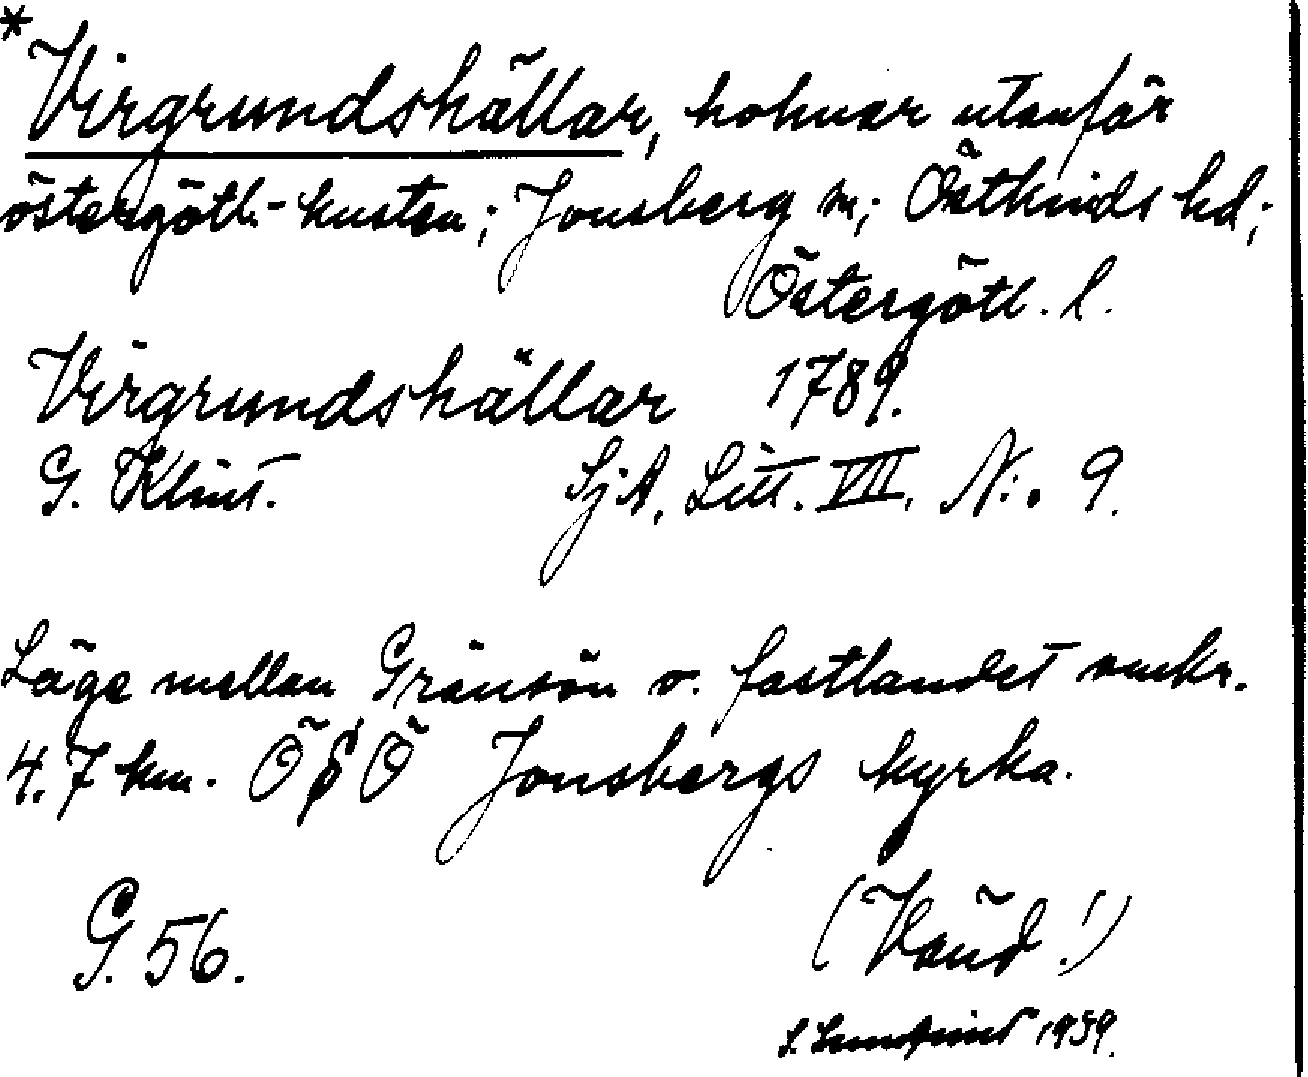 *Virgrundshällar, holmar utanför
östergötl.-kusten; Jonsberg sn; Östkinds hd;
Östergötl. l.
Virgrundshällar 1789.
G. Klint. SjA, Litt. VII, N:o 9.
Läge mellan Gränsön o. fastlandet omkr.
4.7 km. Ö S Ö Jonsbergs kyrka.
G. 56. (Vänd!)
1939.